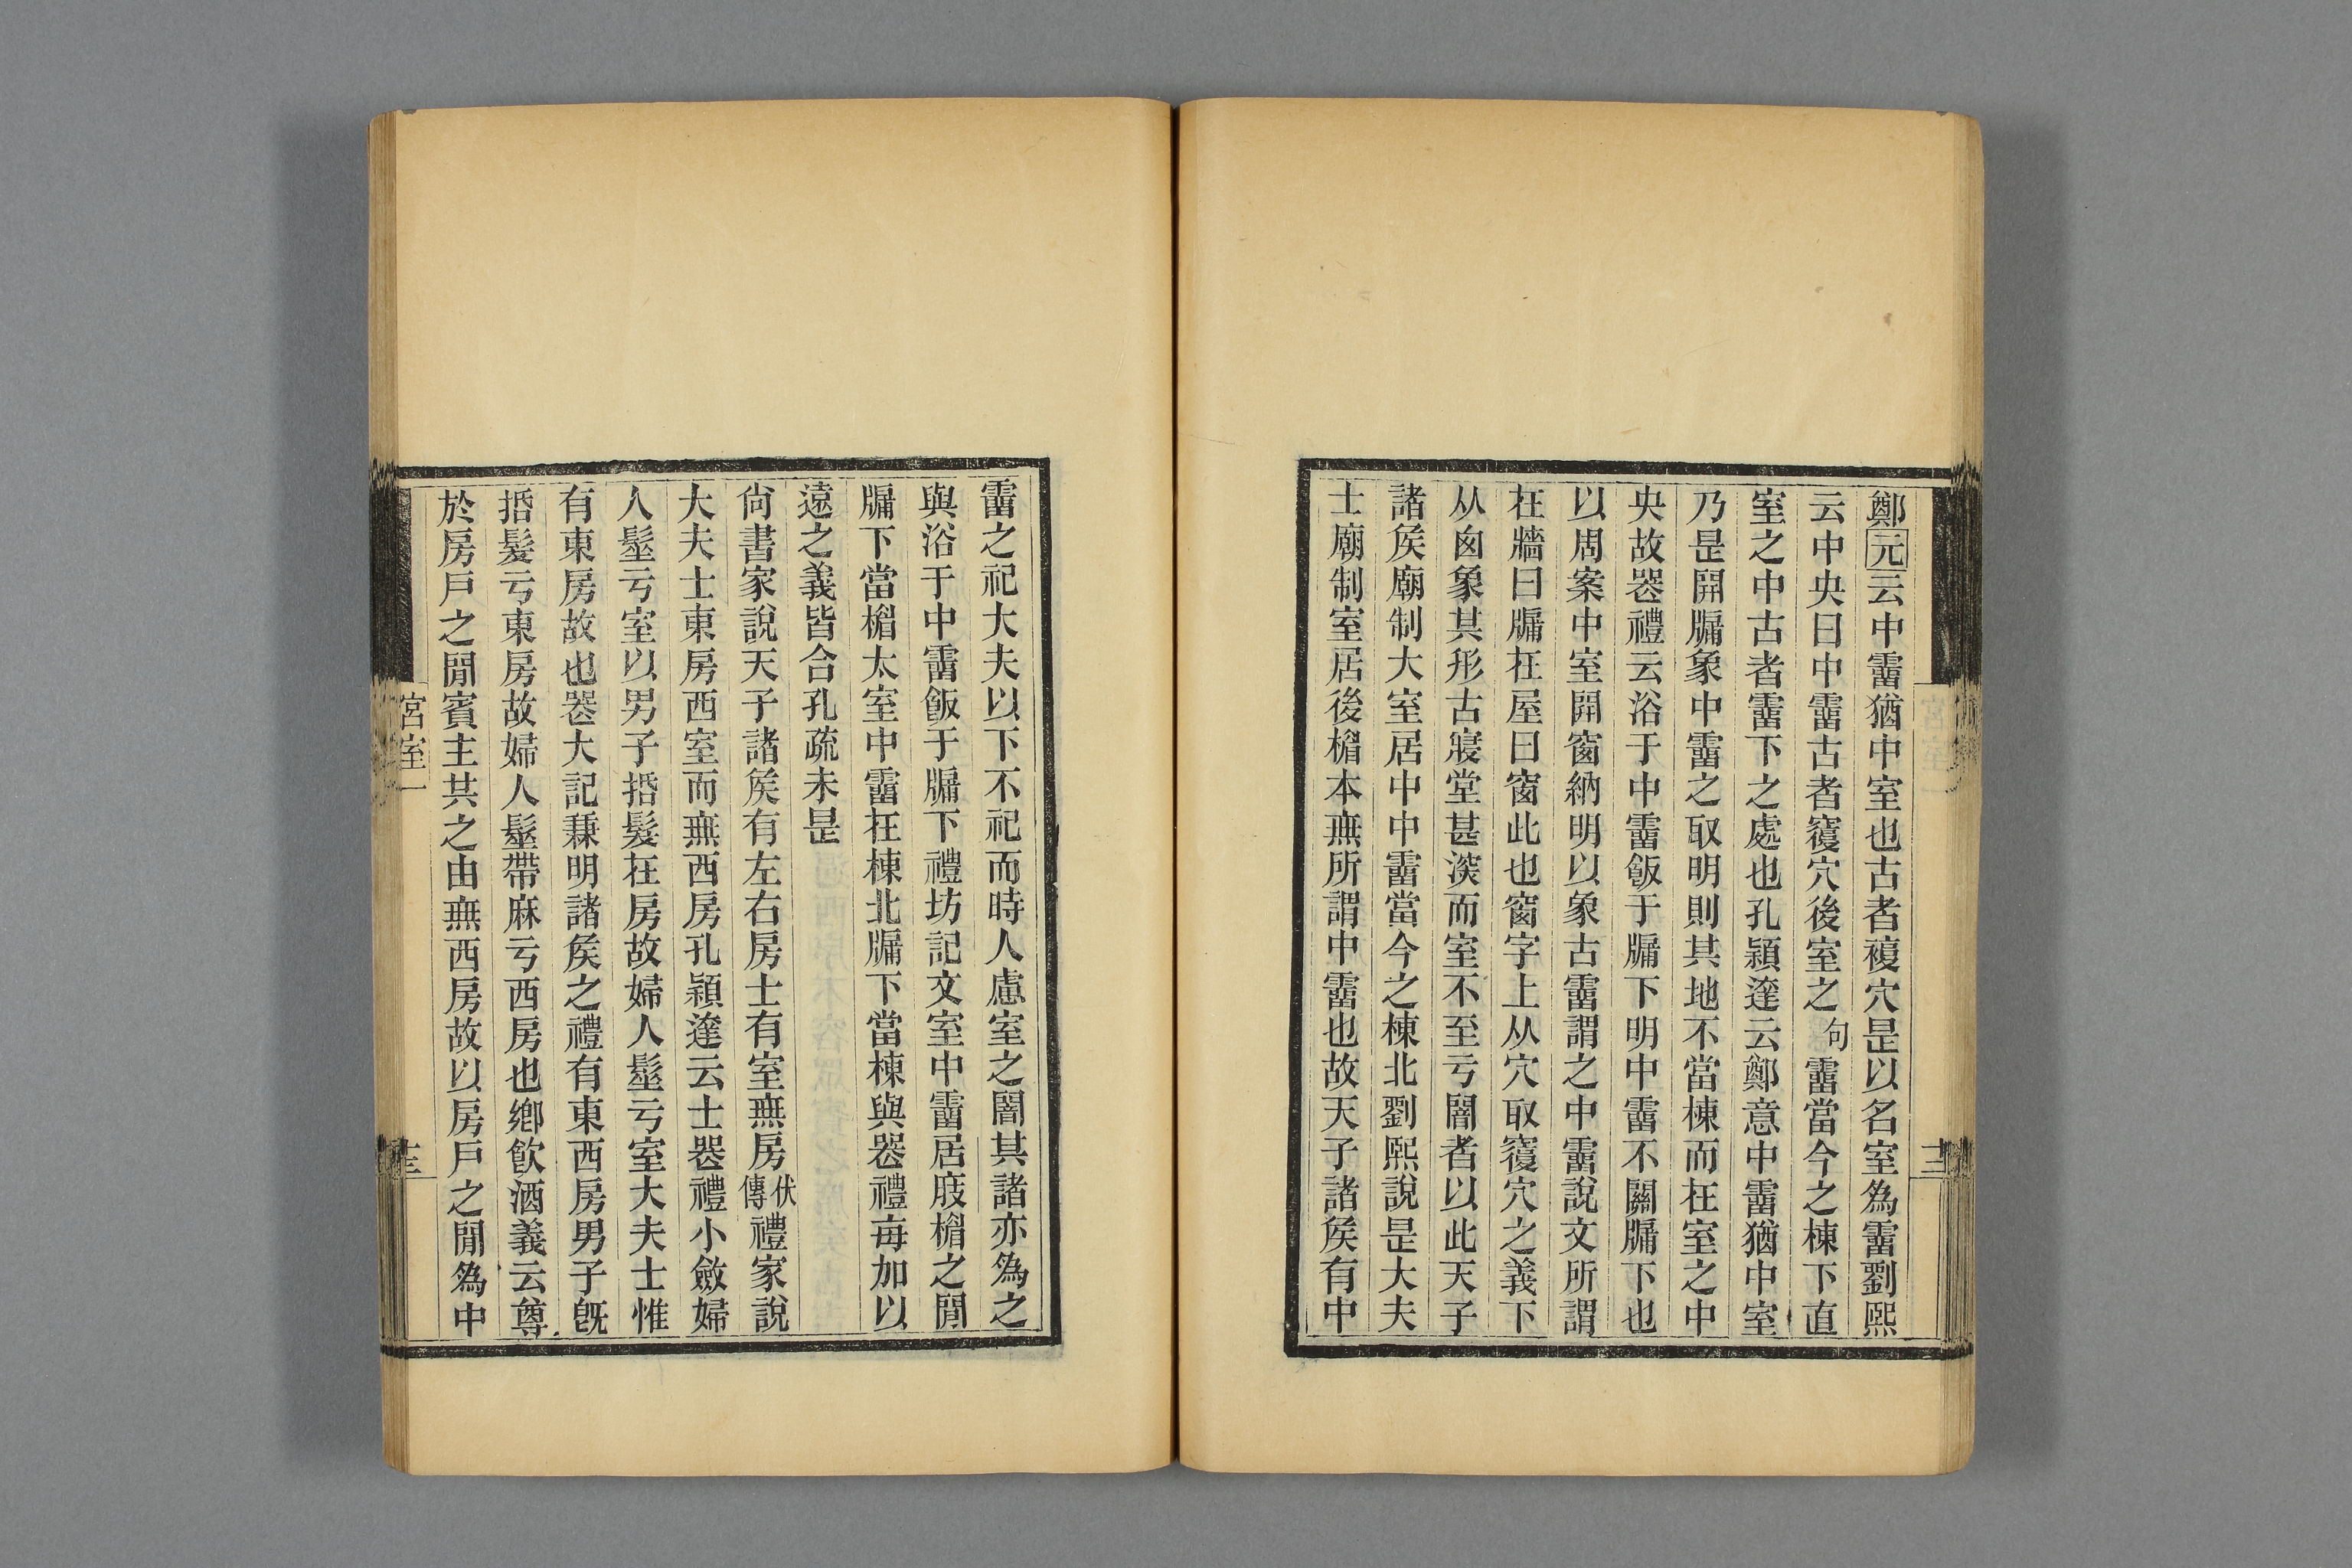 鄭元云中霤猶中室也古者複穴是以名室爲霤劉熙
云中央曰中霤古者覆穴後室之句霤當今之棟下直
室之中古者霤下之處也孔穎達云鄭意中霤猶中室
乃是開牖象中霤之取明則其地不當棟而在室之中
央故喪禮云浴于中霤飯于牖下明中霤不關牖下也
以周案中室開窗納明以象古霤謂之中霤說文所謂
在牆曰牖在屋曰窗此也窗字上从穴取覆穴之義下
从囪象其形古寢堂甚深而室不至亏闇者以此天子
諸侯廟制大室居中中霤當今之棟北劉熙說是大夫
士廟制室居後楣本無所謂中霤也故天子諸侯有中
霤之祀大夫以下不祀而時人慮室之闇其諸亦爲之
與浴于中霤飯于牖下禮坊記文室中霤居庪楣之閒
牖下當楣太室中霤在棟北牖下當棟與喪禮每加以
遠之義皆合孔疏未是
尙書家說天子諸侯有左右房士有室無房伏傳禮家說
大夫士東房西室而無西房孔穎達云士喪禮小斂婦
人髽亏室以男子括髮在房故婦人髽亏室大夫士惟
有東房故也喪大記兼明諸侯之禮有東西房男子旣
括髮亏東房故婦人髽帶麻亏西房也鄉飮酒義云尊
於房戶之閒賓主共之由無西房故以房戶之閒爲中
宮室一
十三